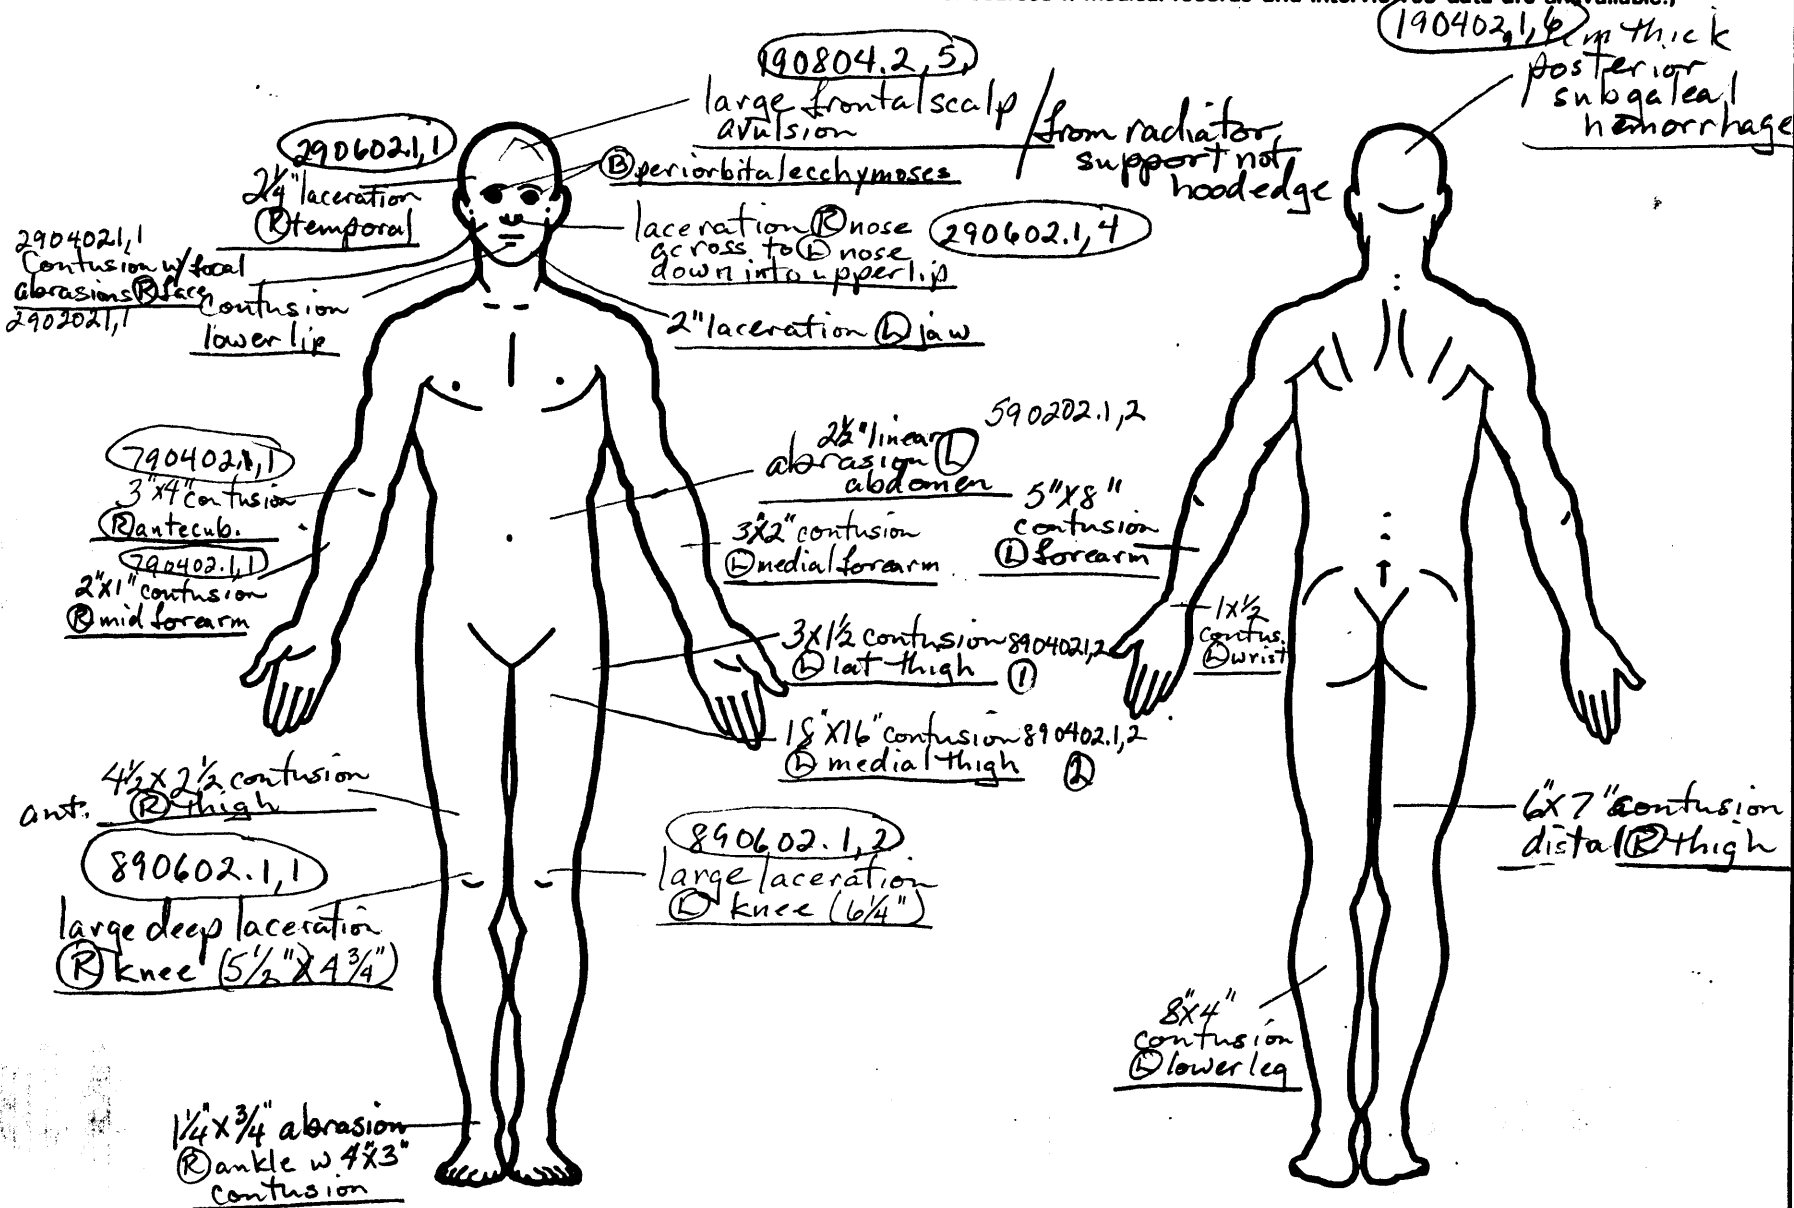 medical records and interviewee data are unavailable.,
190402.1,6
cm thick
posterior
subgaleal
hemorrhage
190804.2,5,
large frontal scalp
avulsion
/from radiator,
support not
hood edge
290602.1,1
2 1/4" laceration
Ⓡ temporal
Ⓑ periorbital ecchymoses
laceration Ⓡ nose
across to Ⓛ nose
down into upper lip
290602.1,4
290402.1,1
Contusion w/ focal
abrasions Ⓡ face
290202.1,1
Contusion
lower lip
2" laceration Ⓛ jaw
590202.1,2
2 1/2" linear
abrasion Ⓛ
abdomen
790402.1,1
3"x4" contusion
Ⓡ antecub.
790402.1,1
2"x1" contusion
Ⓡ mid forearm
3"x2" contusion
Ⓛ medial forearm
5"x8"
contusion
Ⓛ forearm
1x1/2
contus.
Ⓛ wrist
3x1 1/2 contusion 890402.1,2
Ⓛ lat thigh ①
18"x16" contusion 890402.1,2
Ⓛ medial thigh ②
4 1/2 x 2 1/2 contusion
ant. Ⓡ thigh
890602.1,1
large deep laceration
Ⓡ knee (5 1/2" x 4 3/4")
890602.1,2
large laceration
Ⓛ knee (6 1/4")
6"x7" contusion
distal Ⓡ thigh
8"x4"
contusion
Ⓛ lower leg
1 1/4" x 3/4" abrasion
Ⓡ ankle w 4"x3"
contusion